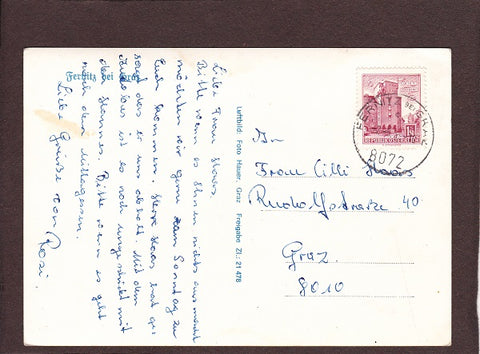 Fernitz bei Graz
Liebe Frau Haas.
Bitte wenn es Ihnen nichts ausmacht
möchten wir gerne am Sonntag zu
Euch kommen. Herr Haas hat ge-
sagt das er uns abholt. Mit dem
Autobus ist es noch ungeschickt mit
dem Hannes. Bitte wenn es geht
nach dem Mittagessen.
Liebe Grüße von
Rosi.
Luftbild: Foto Hauer, Graz Freigabe Zl.: 21 478
FERNITZ BEI GRAZ
8072
REPUBLIK ÖSTERREICH
An
Frau Cilli Haas
Rudolfstraße 40
Graz.
8010